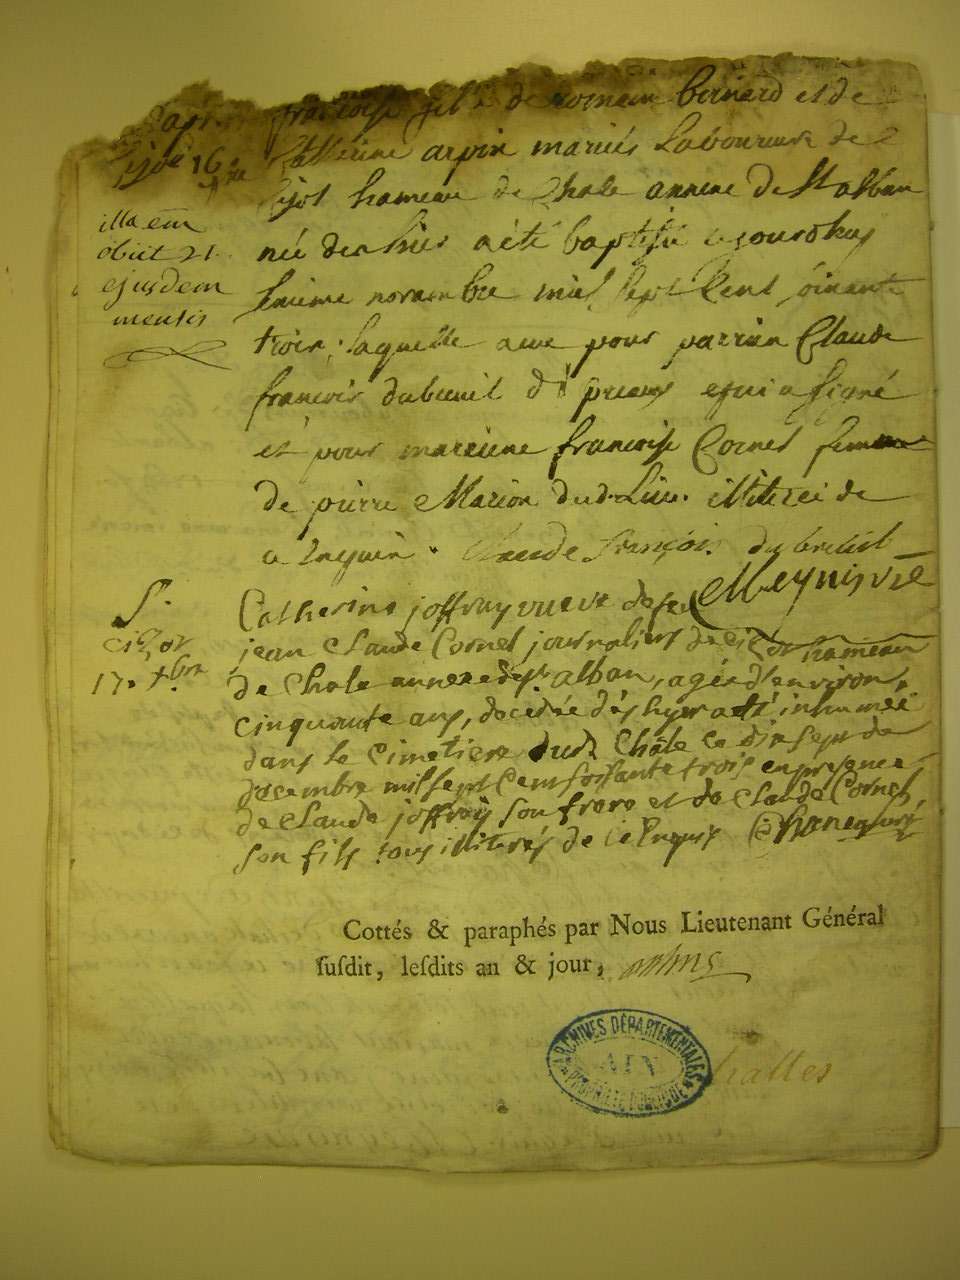 Bapt.
françoise fille de romain bernard et de
16
Catherine arpin mariés Laboureurs de
hameau de Chale annexe de St alban
illa em
obiit 21
née d'hier a été baptisée ce jourdhuy
ejusdem
novembre mil sept Cent soixante
mensis
trois, laquelle a eu pour parrain Claude
françois dubreuil et qui a signé
et pour marraine françoise Cornet femme
de pierre Marion dud. Lieu. illiterée de
ce Enquise. Claude françois dubreuil
Meynis vre
S.
Catherine joffray veuve de feu
cizor
jean Claude Cornet journaliers de cizor hameau
17. xbre
de Chale annexe de st alban, agée d'environ
cinquante ans, decedée dès hyer a été inhumée
dans le cimetiere dud. Châle ce dix sept de
decembre mil sept Cent soissante trois en presence
de Claude joffray son frere et de Claude Cornet
son fils tous illiterés de ce Enquis
Cottés & paraphés par Nous Lieutenant Général
suſdit, leſdits an & jour,
ARCHIVES DÉPARTEMENTALES
AIN
PROPRIÉTÉ PUBLIQUE
halles